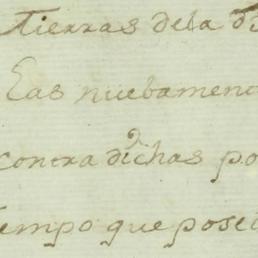 Tierras dela
Las nuebamen
contra dichas po
iempo que pose